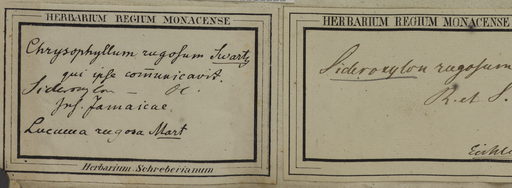 HERBARIUM REGIUM MONACENSE
Chrysophyllum rugosum Swartz
qui ipse communicavit.
Sideroxylon —
Ins. Jamaicae
Lucuma rugosa Mart
Herbarium Schreberianum
HERBARIUM REGIUM MONACENSE
Sideroxylon rugosum
R. et S.
Eichle